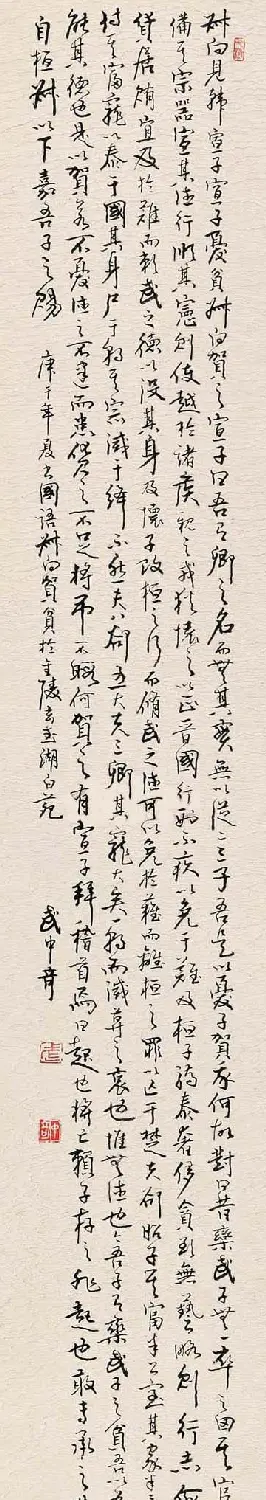 叔向見韓宣子宣子憂貧叔向賀之宣子曰吾有卿之名而無其實無以從二三子吾是以憂子賀我何故對曰昔欒武子無一卒之田其官
備其宗器宣其德行順其憲則使越於諸侯親之戎狄懷之以正晉國行刑不疚以免于難及桓子驕泰奢侈貪欲無藝略則行志
貸居賄宜及於難而賴武之德以沒其身及懷子改桓之行而脩武之德可以免於難而離桓之罪以亡于楚夫郤昭子其富半公室其家半
恃其富寵以泰于國其身尸于朝其宗滅于絳不然夫八郤五大夫三卿其寵大矣一朝而滅莫之哀也惟無德也今吾子有欒武子之貧吾以為
能其德也是以賀若不憂德之不建而患貨之不足將弔不暇何賀之有宣子拜稽首焉曰起也將亡賴子存之非起也敢專承之
自桓叔以下嘉吾子之賜
庚子年夏 國語叔向賀貧於 湖白苑
武中奇